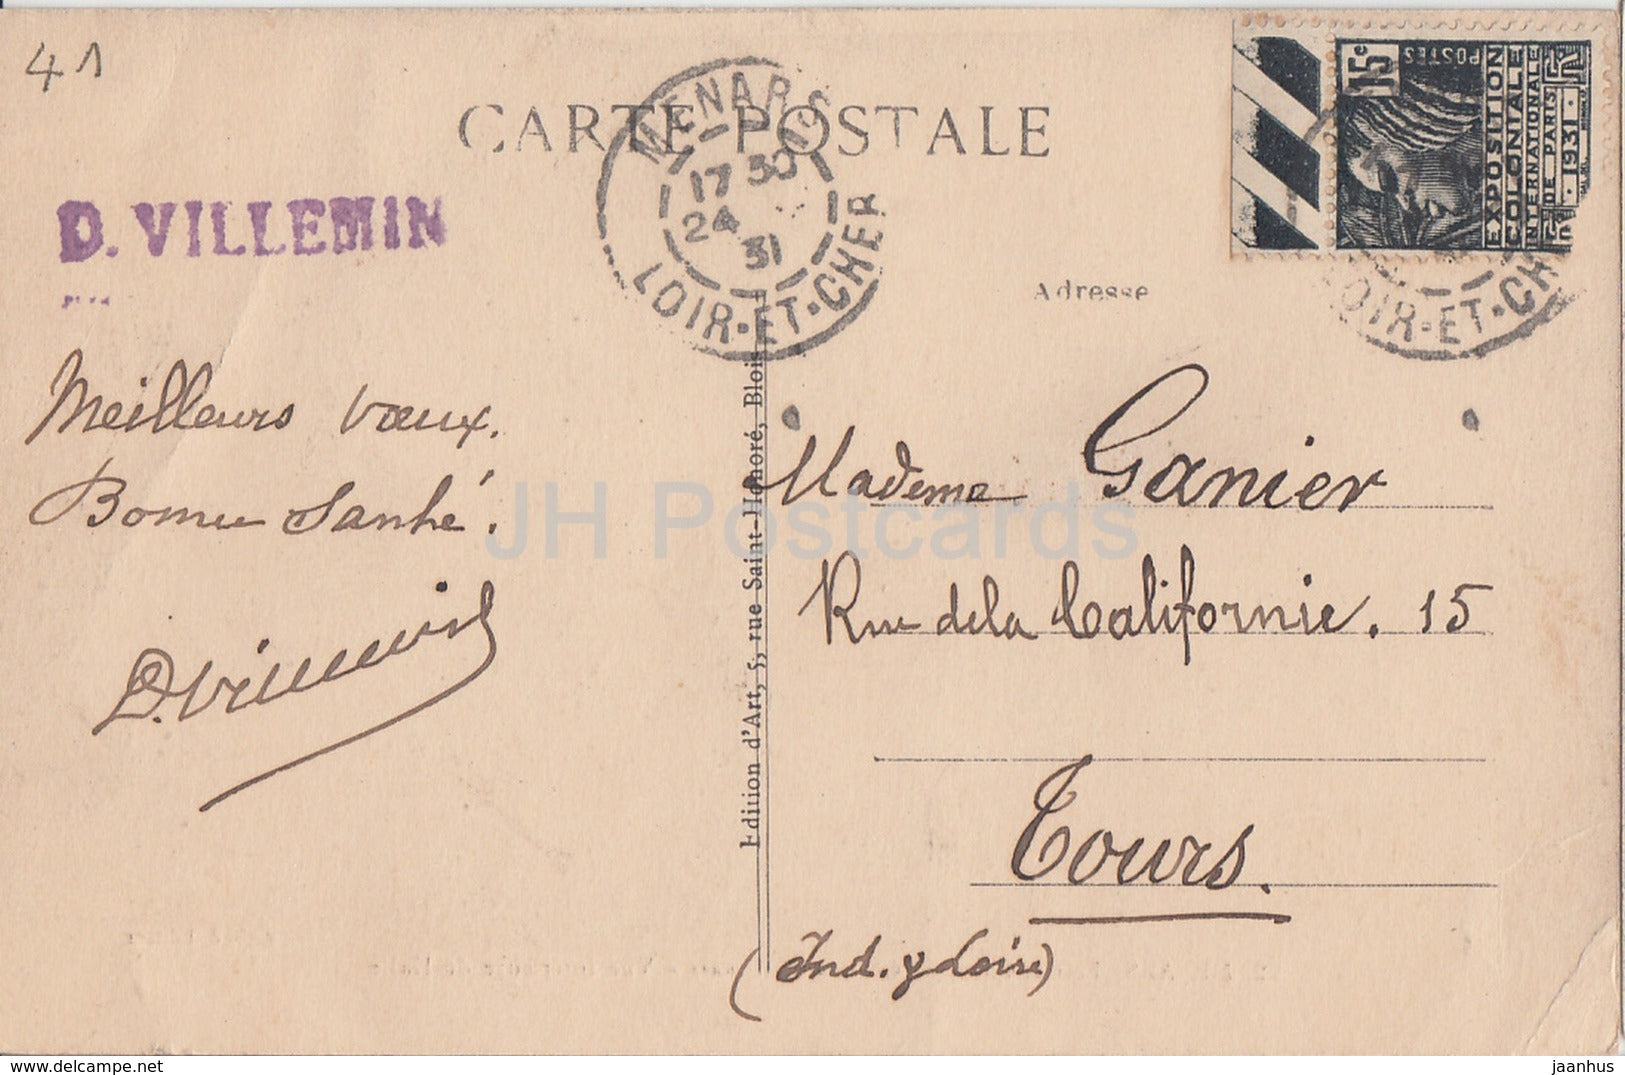 41
CARTE POSTALE
MENARS
17 30
24
31
LOIR-ET-CHER
15c
POSTES
EXPOSITION
COLONIALE
INTERNATIONALE
DE PARIS
1931
OIR-ET-CHE
D. VILLEMIN
Adresse
Meilleurs vœux.
Bonne Santé.
D. Villemin
Edition d'Art, 5, rue Saint-Honoré, Blois
Madame Ganier
Rue de la Californie. 15
Tours.
(Ind. & Loire)
JH Postcards
www.hippostcard.com/store/jaanhus
jaanhus